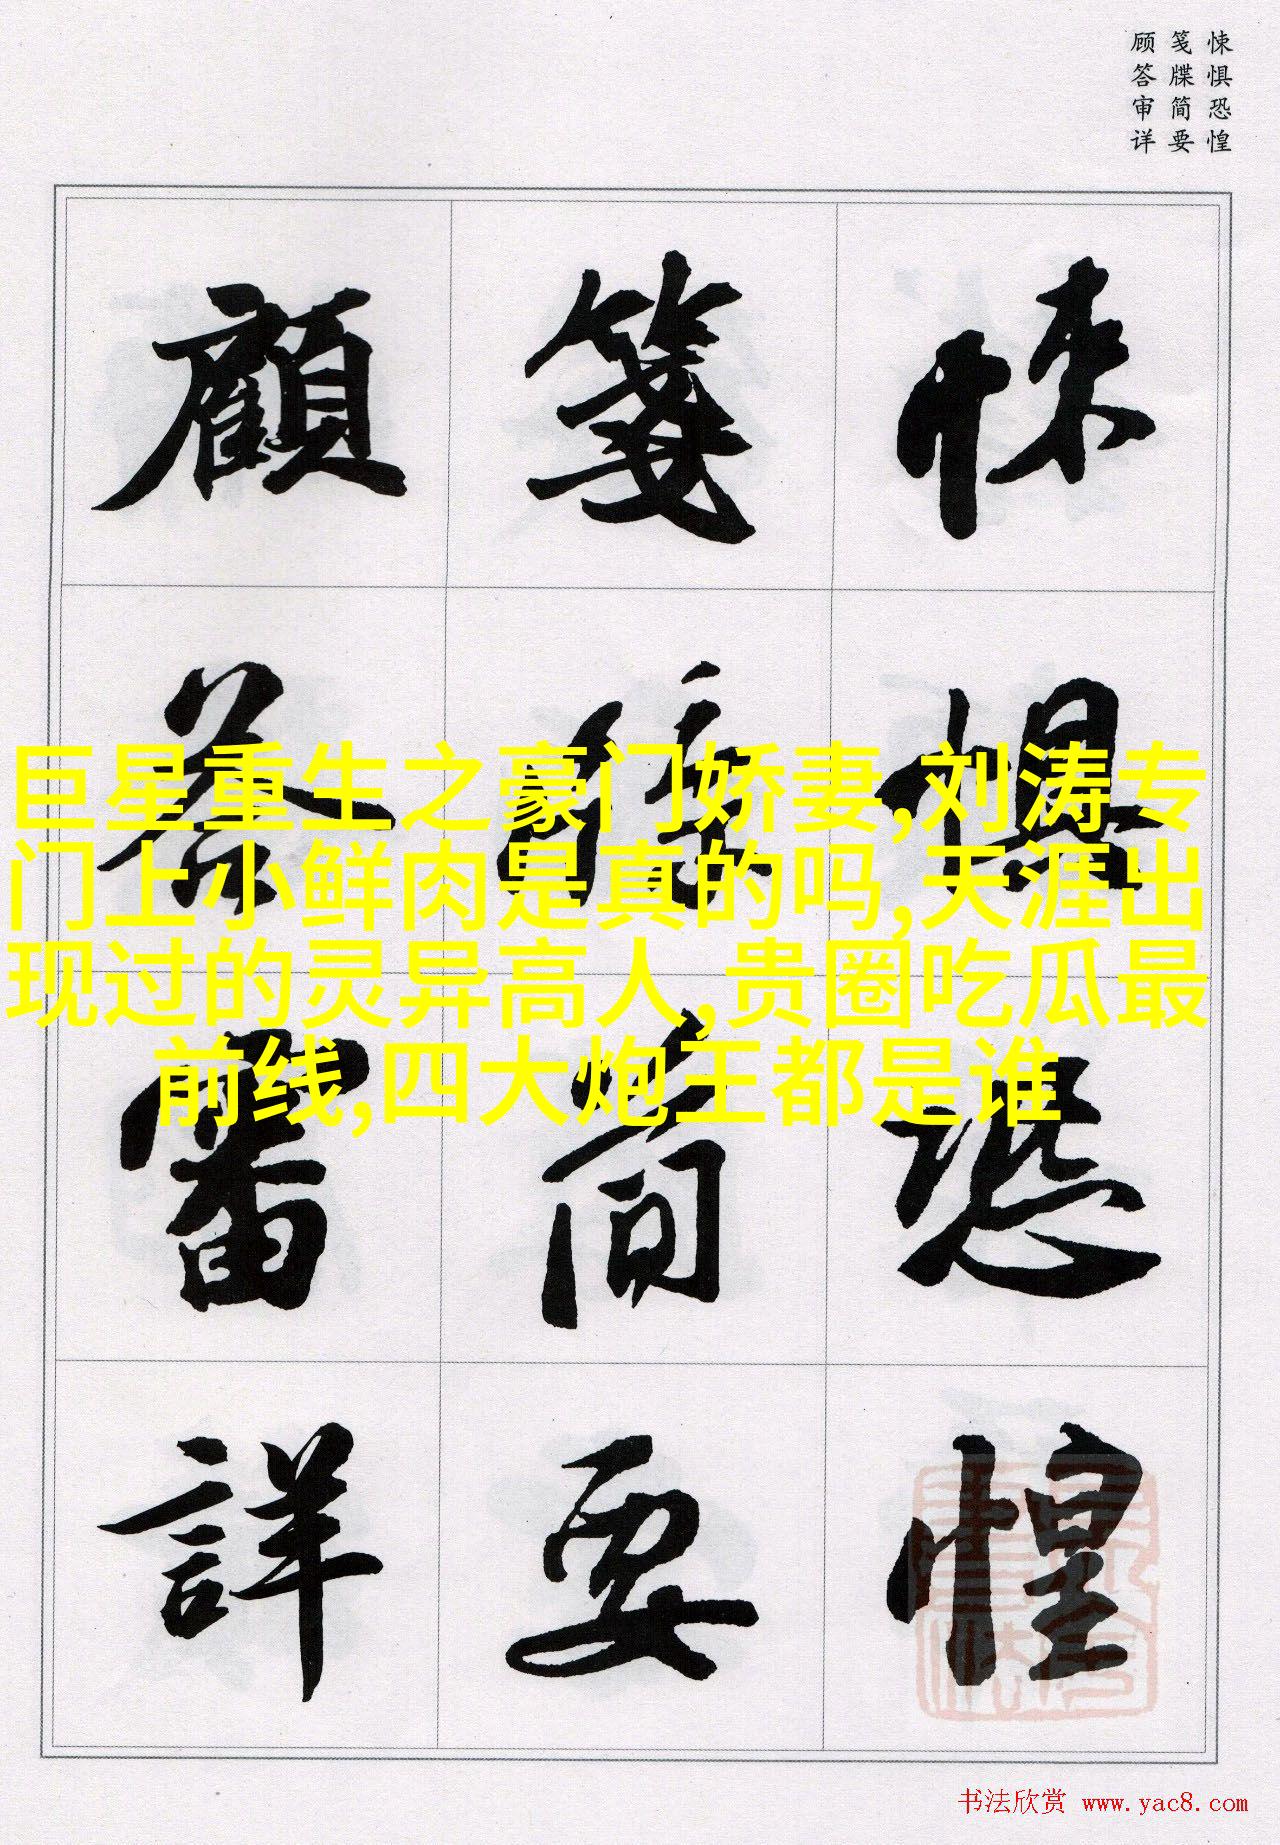 悚惧恐惶
笺牒简要
顾答审详
悚惧恐惶
箋牒简要
顧答審詳
巨星重生之豪门娇妻,刘涛专
门上小鲜肉是真的吗,天涯出
现过的灵异高人,贵圈吃瓜最
前线,四大炮王都是谁
书法欣赏 www.yac8.com